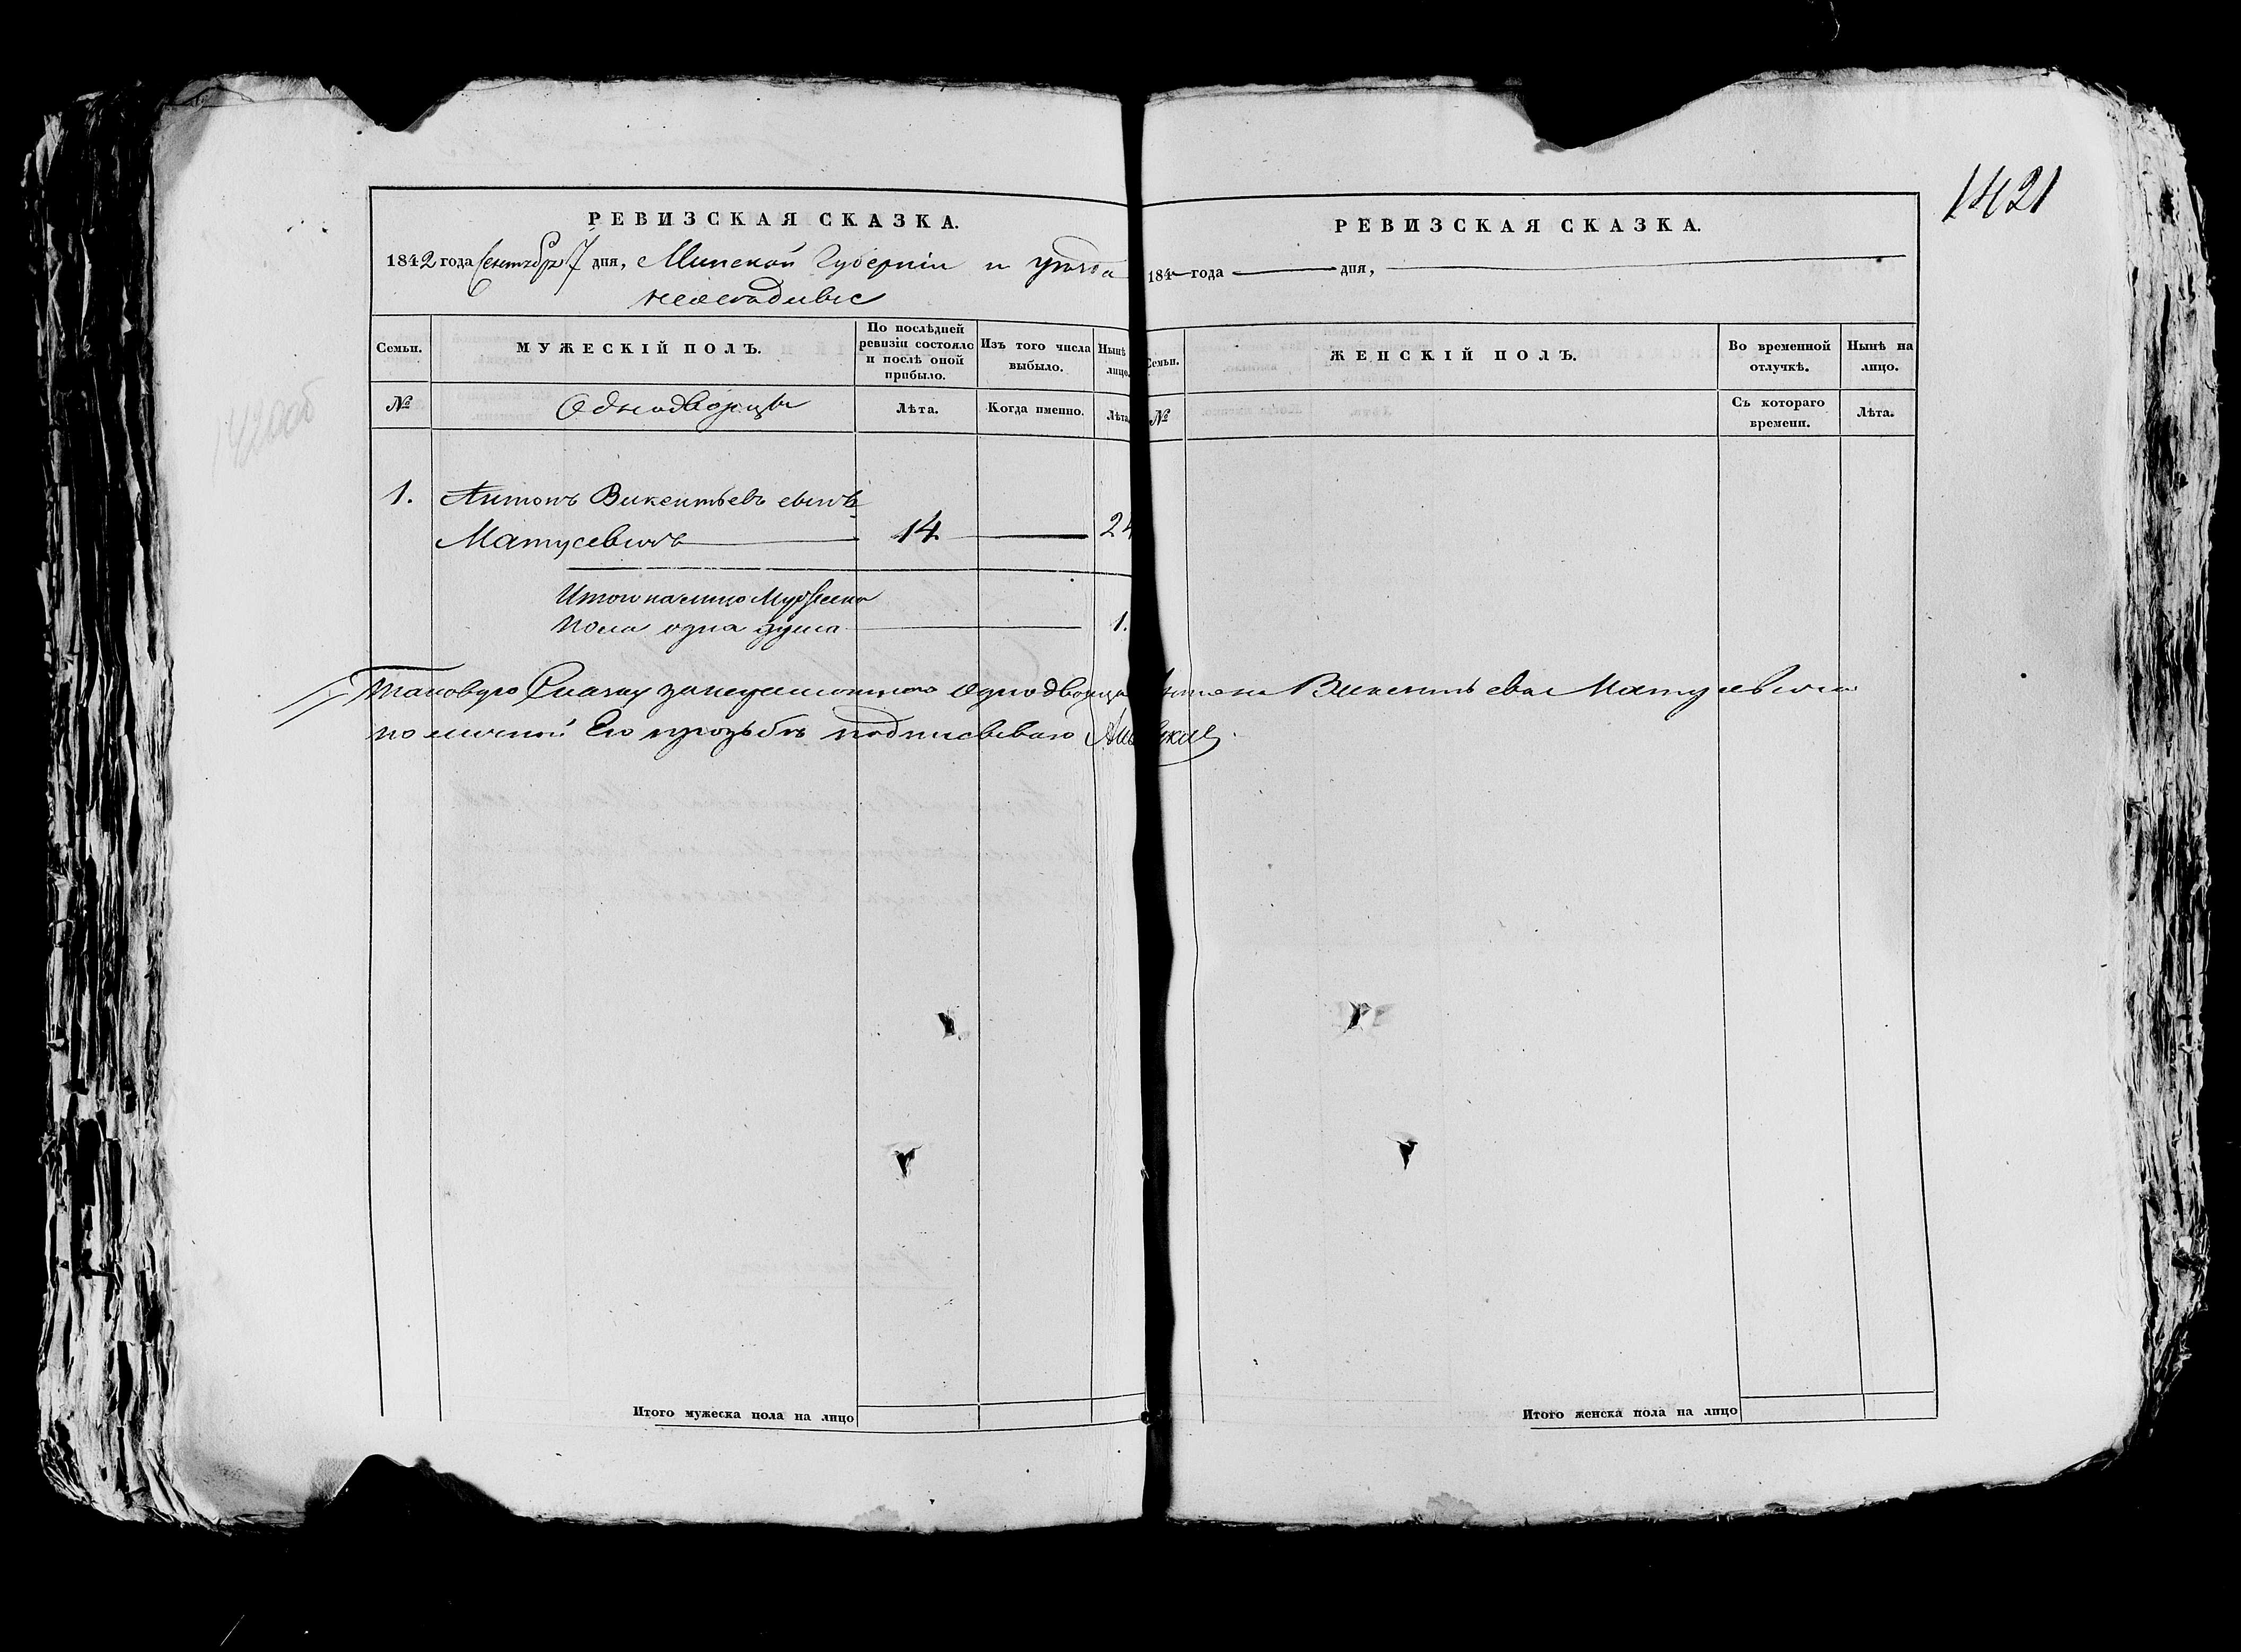 1421
1420об
РЕВИЗСКАЯ СКАЗКА.
1842 года Сентября 7 дня, Минской Губернiи и уѣзда
РЕВИЗСКАЯ СКАЗКА.
184 года дня,
Семьи. МУЖЕСКІЙ ПОЛЪ. По послѣдней ревизіи состояло и послѣ оной прибыло. Изъ того числа выбыло. Нынѣ лицо.
№ Однодворцы Лѣта. Когда именно. Лѣта
Семьи. ЖЕНСКІЙ ПОЛЪ. Во временной отлучкѣ. Нынѣ на лицо.
№ Съ котораго времени. Лѣта.
1. Антонъ Викентьевъ сынъ
Матусевичъ 14 24
Итого налицо Мужеска
пола одна душа 1.
Таковую Сказку за неграмотного однодворца Антона Викентьева Матусевича
по личной Его прозьбѣ подписываю
Итого мужеска пола на лицо
Итого женска пола на лицо